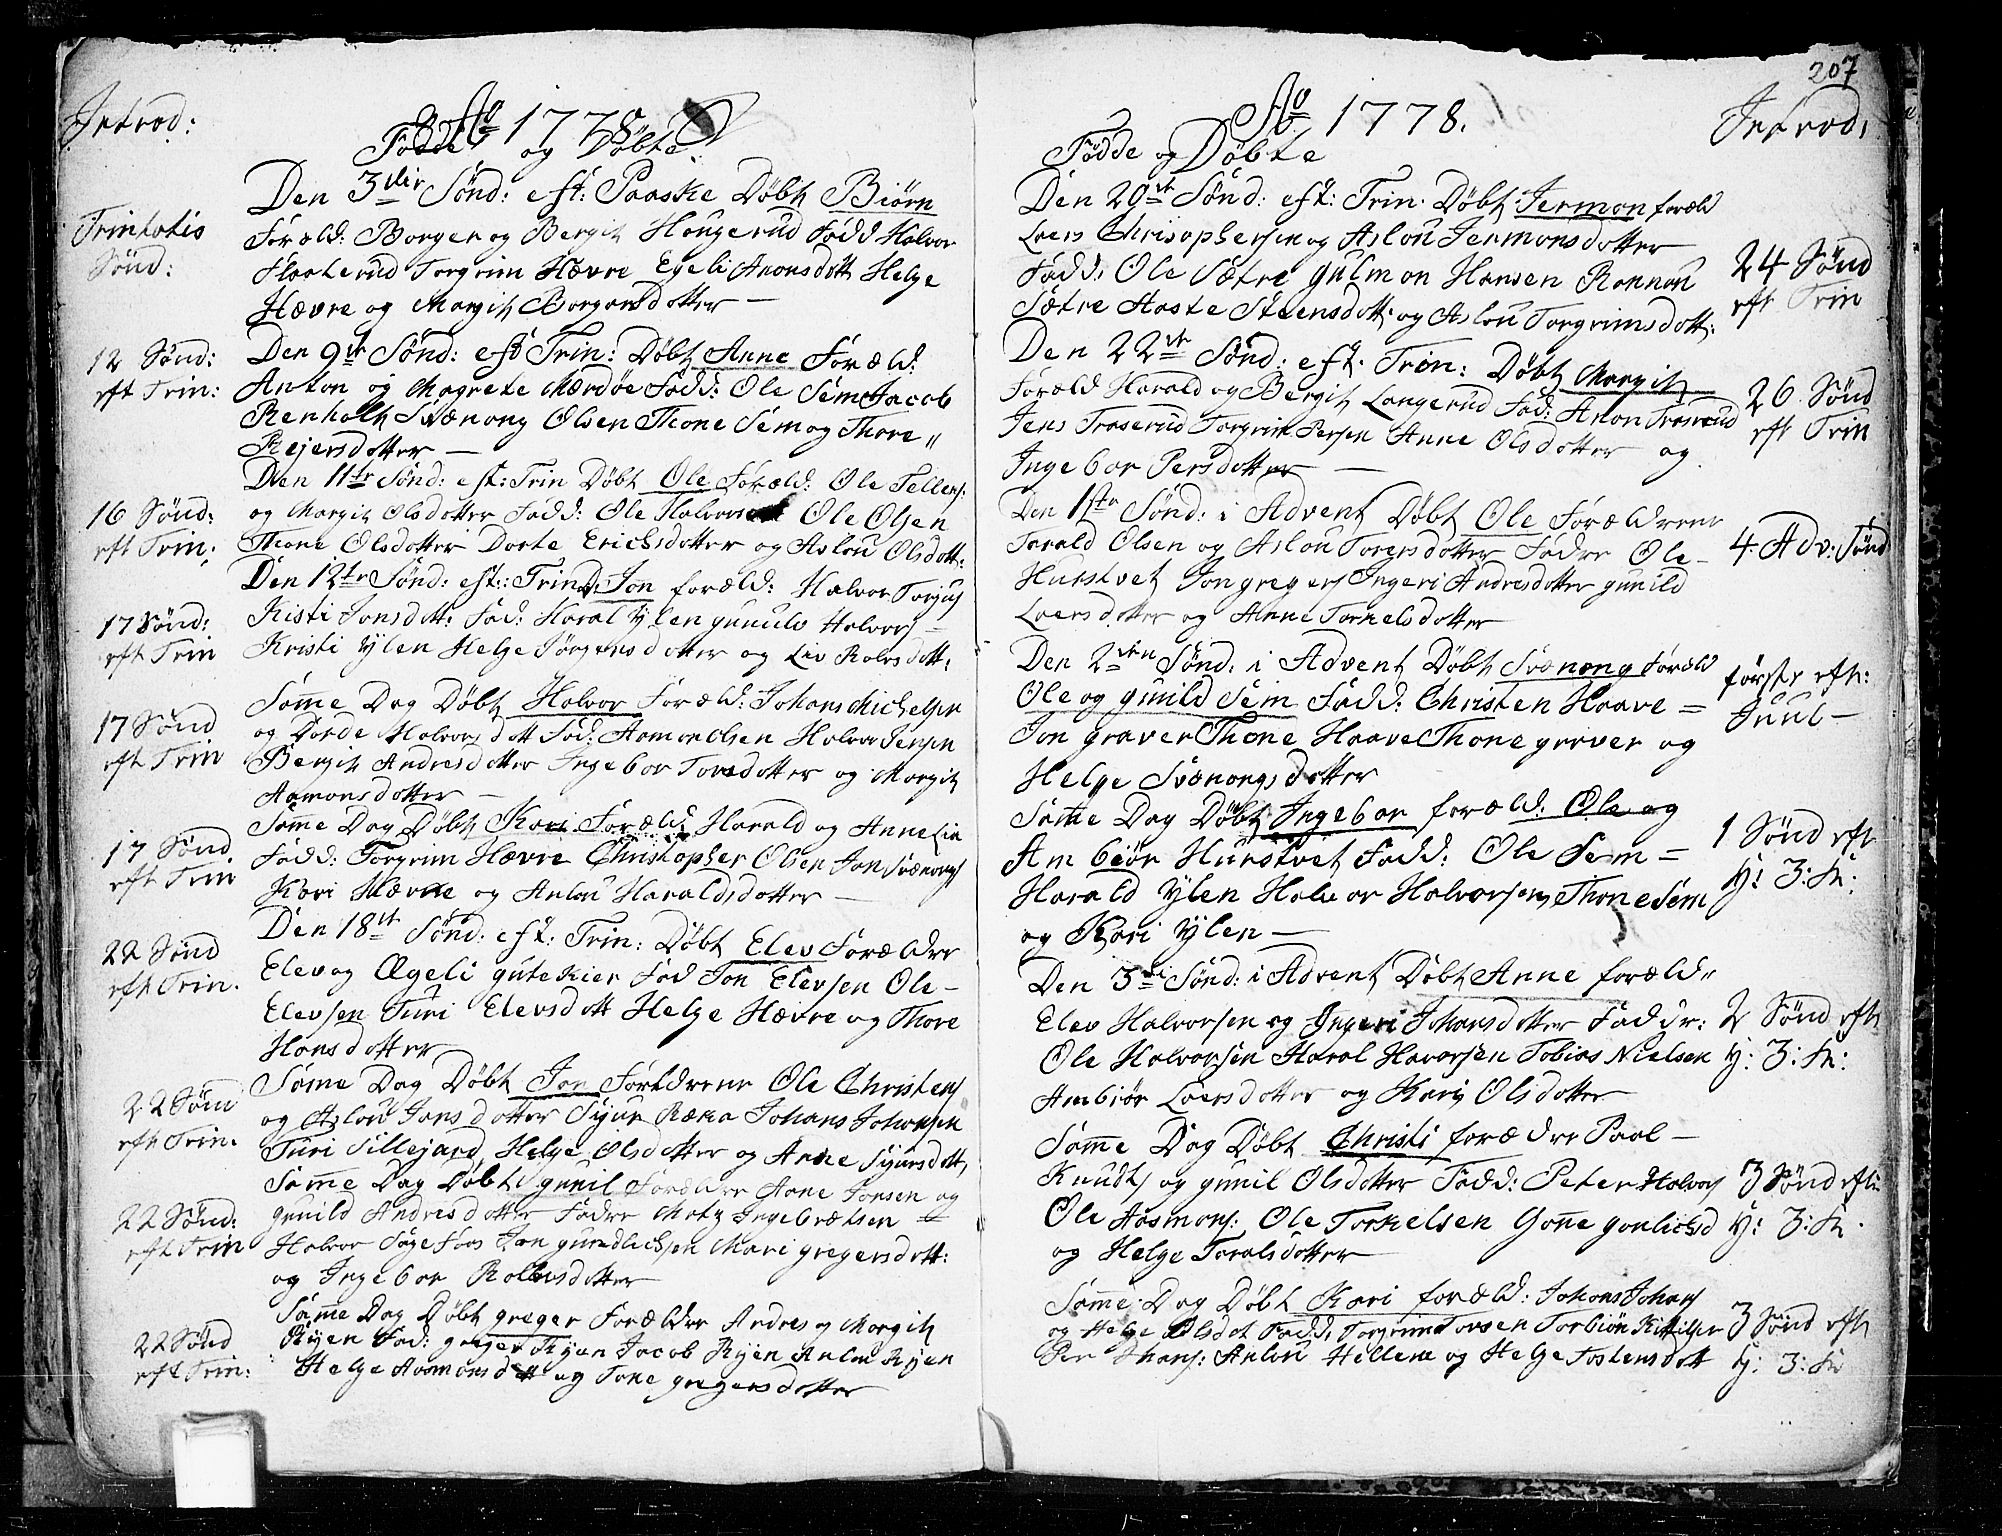 Introd:
Ao 1778
Fødde og Døbte
Den 3die Sønd: eft: Paaske Døbt Biørn
Trinitatis
Sønd:
Foræld: Borger og Bergit Haugerud Fadd Halvor
Flaaterud Torgrim Hævre Egeli Amonsdott Helge
Hævre og Margit Borgersdotter —
12 Sønd:
eft Trin:
Den 9de Sønd: eft Trin: Døbt Anne Foræld:
Anton og Magrete Mærdøe Fadd: Ole Sem Jacob
Renholt Svænong Olsen Thone Sem og Thore
Rejersdotter —
16 Sønd:
eft Trin:
Den 11te Sønd: eft: Trin Døbt Ole Foræld: Ole Tellefs:
og Margit Olsdotter Fadd: Ole Halvorsen Ole Olsen
Thone Olsdotter Dorte Erichsdotter og Aslou Olsdott:
17 Sønd:
eft Trin
Den 12te Sønd: eft: Trin D: Jon foræld: Halvor Torgius
Kisti Jonsdott: Fad: Haral Ylen gunuld Halvors
Kristi Ylen Helge Jørgensdotter og Liv Rolvsdott:
17 Sønd
eft Trin
Samme Dag Døbt Halvor Foræld: Johans Michelsen
og Dorde Halvorsdott Fad: Aamon Olsen Halvor Jensen
Bergit Andresdotter Ingebor Toresdotter og Margit
Aamonsdotter —
17 Sønd
eft Trin
Samme Dag Døbt Kari Foræld: Harald og Anne Lia
Fadd: Torgrim Hævre Christopher Olsen Jon Svænongs
Kari Hævre og Anlou Haraldsdotter —
22 Sønd
eft Trin.
Den 18de Sønd: eft: Trin: Døbt Elev Forældre
Elev og Ægeli gutekier Fad Jon Elevsen Ole
Elevsen Turi Elevsdott Helge Hævre og Thore
Hansdotter
22 Sønd
eft Trin.
Samme Dag Døbt Jon Forældrene Ole Christens
og Aslou Jonsdotter Sijur Ræka Johans Johansen
Turi Sillejord Helge Olsdotter og Anne Sijursdott,
22 Sønd:
eft Trin
Samme Dag Døbt gunil Forældre Aane Jonsen og
gunild Andresdotter Fadre Matz Ingebrætsen
Halvor Søgefoss Jon gundlichsen Mari gregersdott:
og Ingebor Rolevsdotter
22 Sønd
eft Trin:
Samme Dag Døbt greger Forældre Andres og Margit
Rijen Fad: greger Rijen Jacob Rijen Anlou Rijen
Helge Aamonsdott og Tone gregersdotter
207
Ao 1778.
Introd:
Fødde og Døbte
Den 20de Sønd: eft: Trin: Døbt Jermon foræld
Laers Chrisophersen og Aslou Jermonsdotter
24 Sønd
eft Trin
Fadd: Ole Sætre gulmon Hansen Rannou
Sætre Aaste Steensdott: og Aslou Torgrimsdott:
Den 22de Sønd: eft: Trin: Døbt Margit
26 Sønd
eft Trin
Foræld Harald og Bergit Langerud Fad: Aslon Traserud
Jens Traserud Torgrim Persen Anne Olsdotter og
Ingebor Persdotter —
Den 1ste Sønd: i Advent Døbt Ole Forældrene
4 Adv: Sønd
Tarald Olsen og Aslou Torgersdotter Fadre Ole
Hurstvet Jon gregers Ingeri Andresdotter gunild
Laersdotter og Anne Torkelsdotter
Den 2den Sønd: i Advent Døbt Svænong foræld
første eft:
Juul —
Ole og gunild Sem Fadd: Christen Haave
Jon graver Thone Haave Thone graver og
Helge Svænongsdotter
Samme Dag Døbt Ingebor foræld: Ole og
1 Sønd eft
H: 3: K:
Ambiør Hurstvet Fadd: Ole Sem
Harald Ylen Halvor Halvorsen Thone Sem
og Kari Ylen —
Den 3die Sønd: i Advent Døbt Anne foræld
Elev Halvorsen og Ingeri Johansdotter Faddr:
2 Sønd eft
H: 3: K:
Ole Halvorsen Haral Havorsen Tobias Nielsen
Ambiør Laersdotter og Kari Olsdotter
Samme Dag Døbt Christi forældre Paal
Knudts og gunil Olsdotter Fadd: Peter Halvors
3 Sønd eft
H: 3: K.
Ole Aasmons: Ole Torkelsen Gonne gonlichsd
og Helge Taralsdotter
Samme Dag Døbt Kari foræld: Johans Johans
3 Sønd eft
H: 3: K
og Helge Olsdot Fadd: Torgrim Torsen Torbiøn Kittilsen
Per Hans: Anlou Hellene og Helge Tostensdott